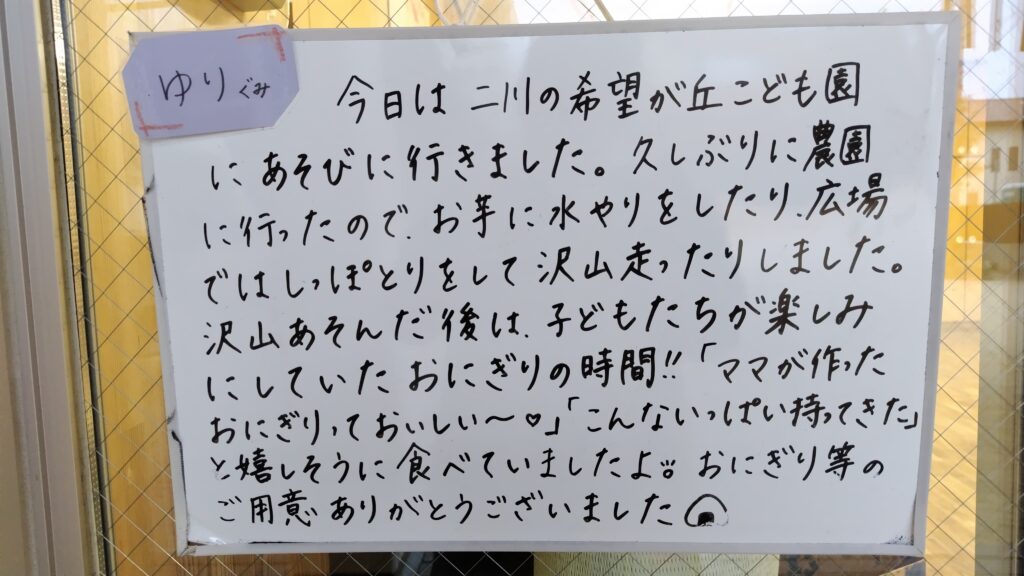 ゆりぐみ
今日は 二川の希望が丘こども園
にあそびに行きました。久しぶりに農園
に行ったので、お芋に水やりをしたり、広場
ではしっぽとりをして沢山走ったりしました。
沢山あそんだ後は、子どもたちが楽しみ
にしていたおにぎりの時間!!「ママが作った
おにぎりっておいしい〜♡」「こんないっぱい持ってきた」
と嬉しそうに食べていましたよ。おにぎり等の
ご用意ありがとうございました🍙